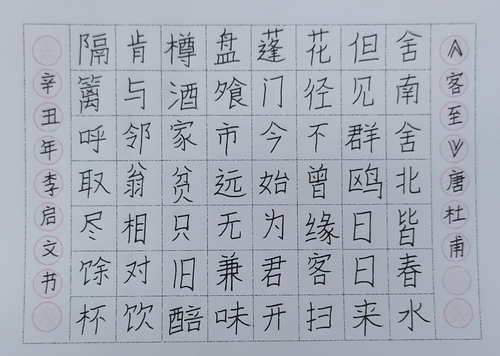 《客至》唐杜甫
舍南舍北皆春水
但见群鸥日日来
花径不曾缘客扫
蓬门今始为君开
盘飧市远无兼味
樽酒家贫只旧醅
肯与邻翁相对饮
隔篱呼取尽馀杯
辛丑年李启文书